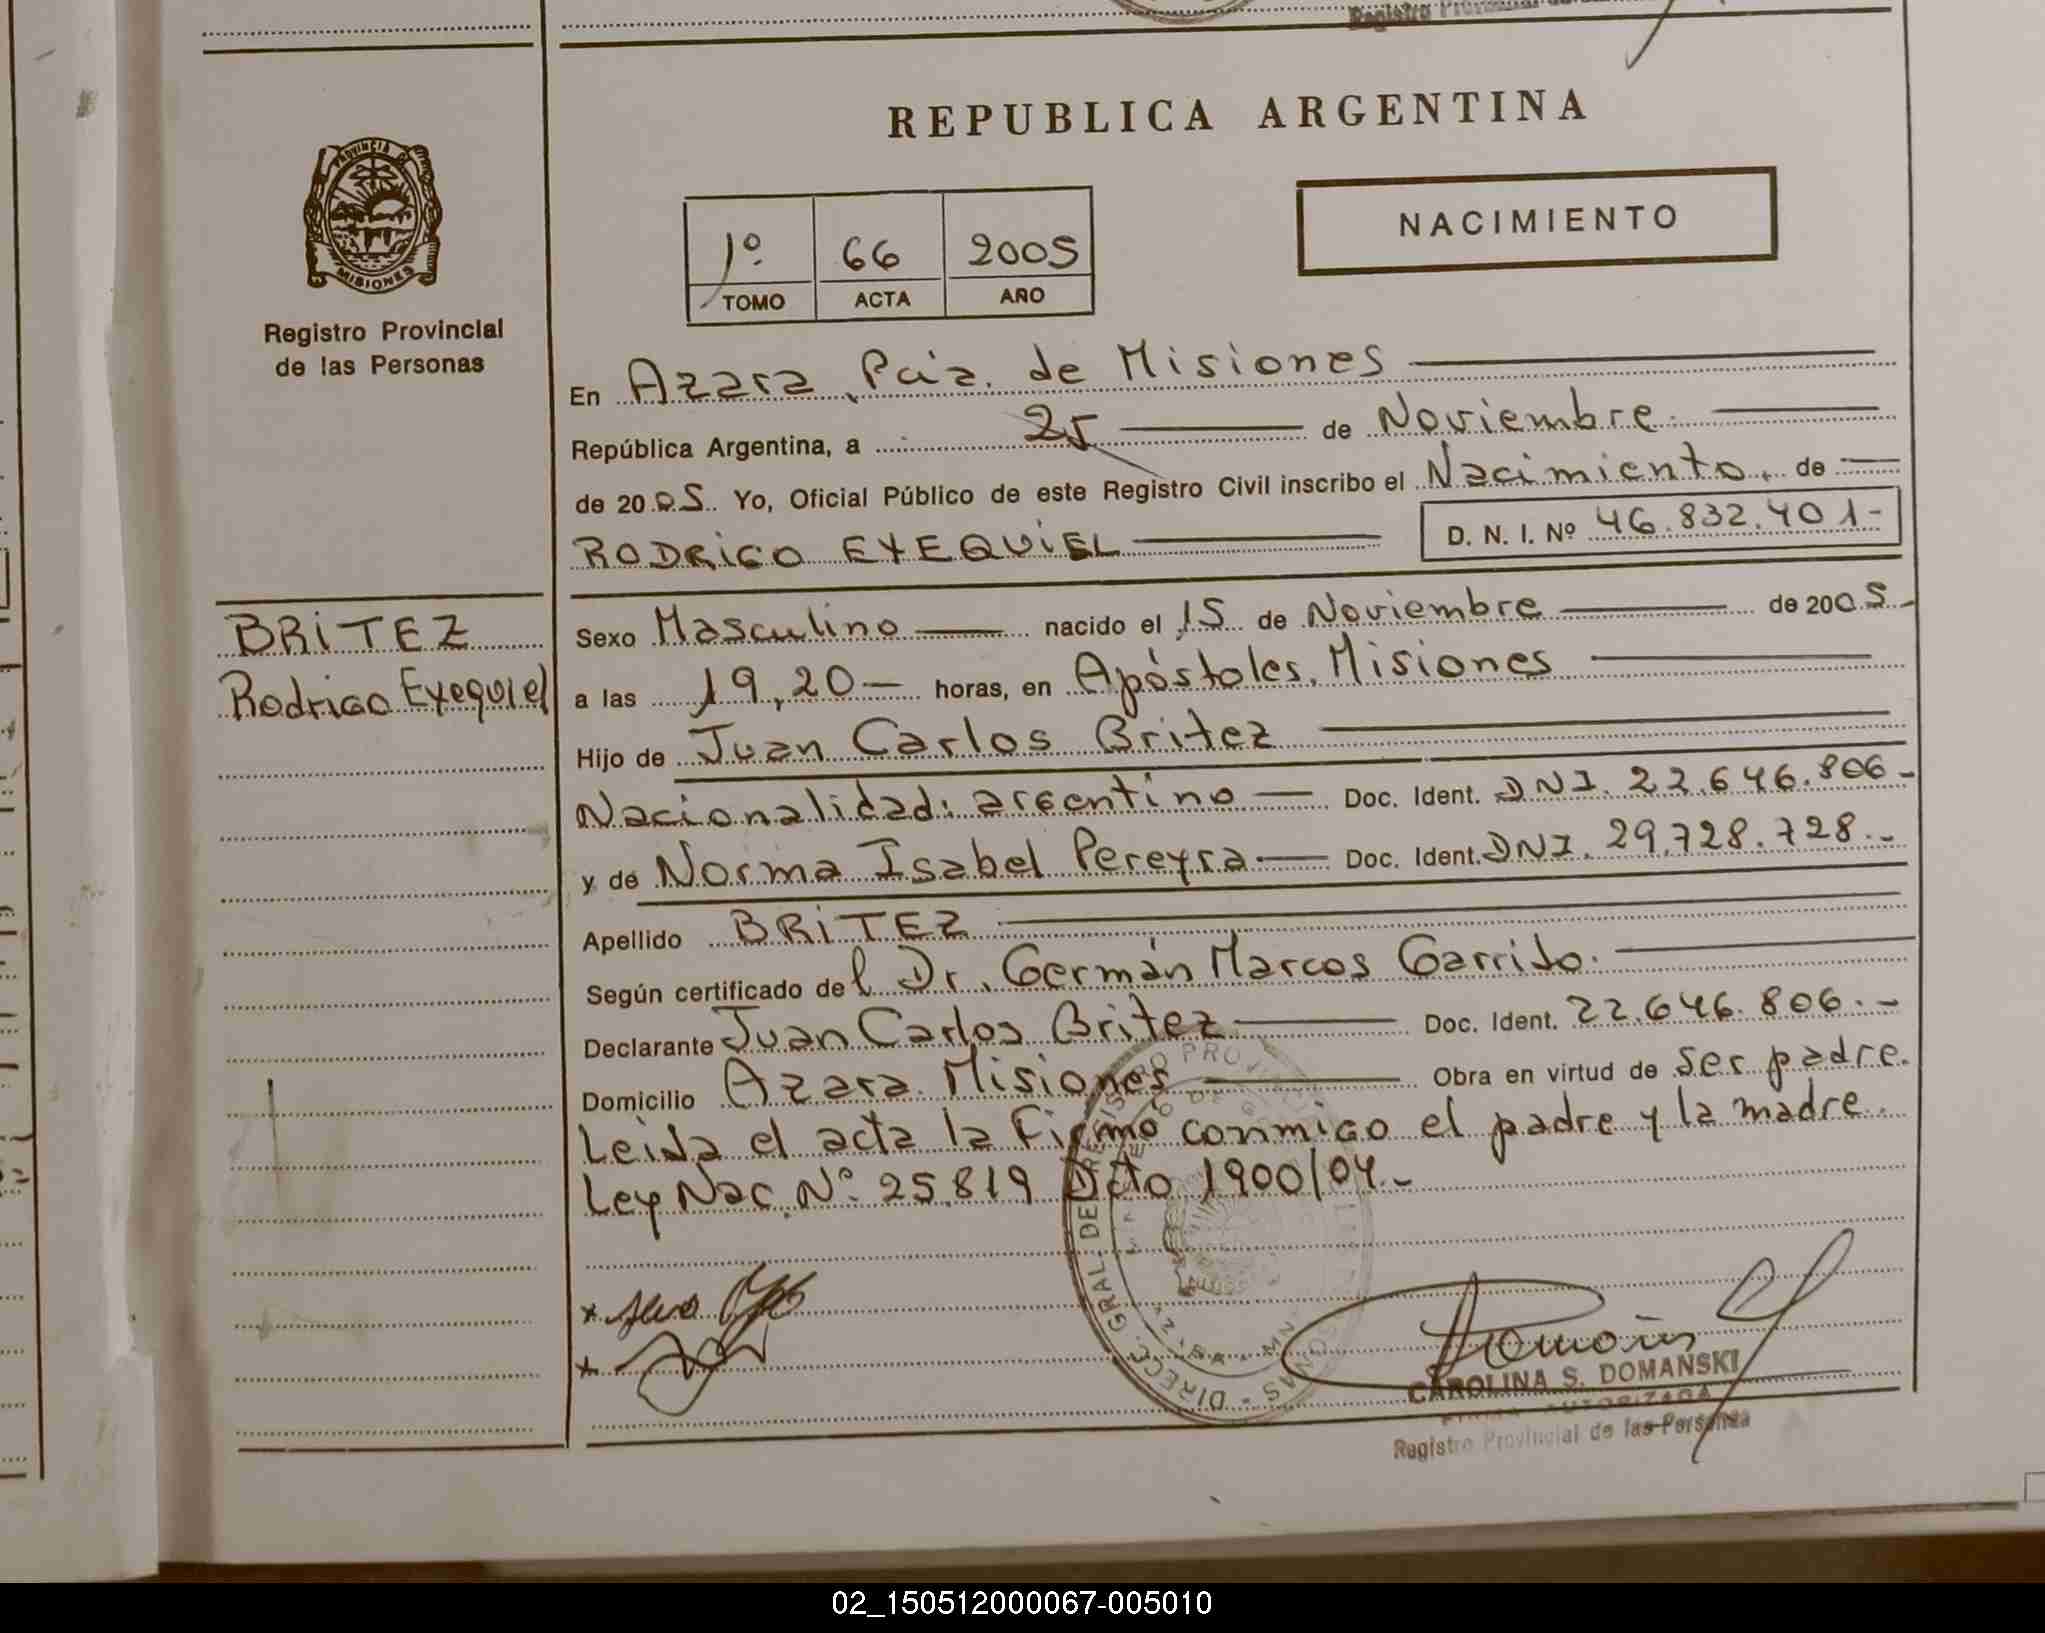 Registro Provincial de
REPUBLICA ARGENTINA
PROVINCIA D
MISIONES
Registro Provincial
de las Personas
1º 66 2005
TOMO ACTA AÑO
NACIMIENTO
En Azara, Pcia. de Misiones
República Argentina, a 25 de Noviembre
de 2005. Yo, Oficial Público de este Registro Civil inscribo el Nacimiento, de
RODRIGO EXEQUIEL D. N. I. Nº 46.832.401-
BRITEZ
Rodrigo Exequiel
Sexo Masculino nacido el 15 de Noviembre de 2005.-
a las 19,20 - horas, en Apóstoles, Misiones
Hijo de Juan Carlos Britez
Nacionalidad: argentino Doc. Ident. DNI. 22.646.806-
y de Norma Isabel Pereyra Doc. Ident. DNI. 29.728.728.-
Apellido BRITEZ
Según certificado del Dr. Germán Marcos Garrido.
Declarante Juan Carlos Britez Doc. Ident. 22.646.806.-
Domicilio Azara. Misiones Obra en virtud de ser padre.
Leida el acta la Firmó conmigo el padre y la madre.
Ley Nac. Nº 25.819 Dcto 1900/04.-
DIRECC. GRAL. DE REGISTRO PROVINCIAL
CAROLINA S. DOMANSKI
FIRMA AUTORIZADA
Registro Provincial de las Personas
02_150512000067-005010